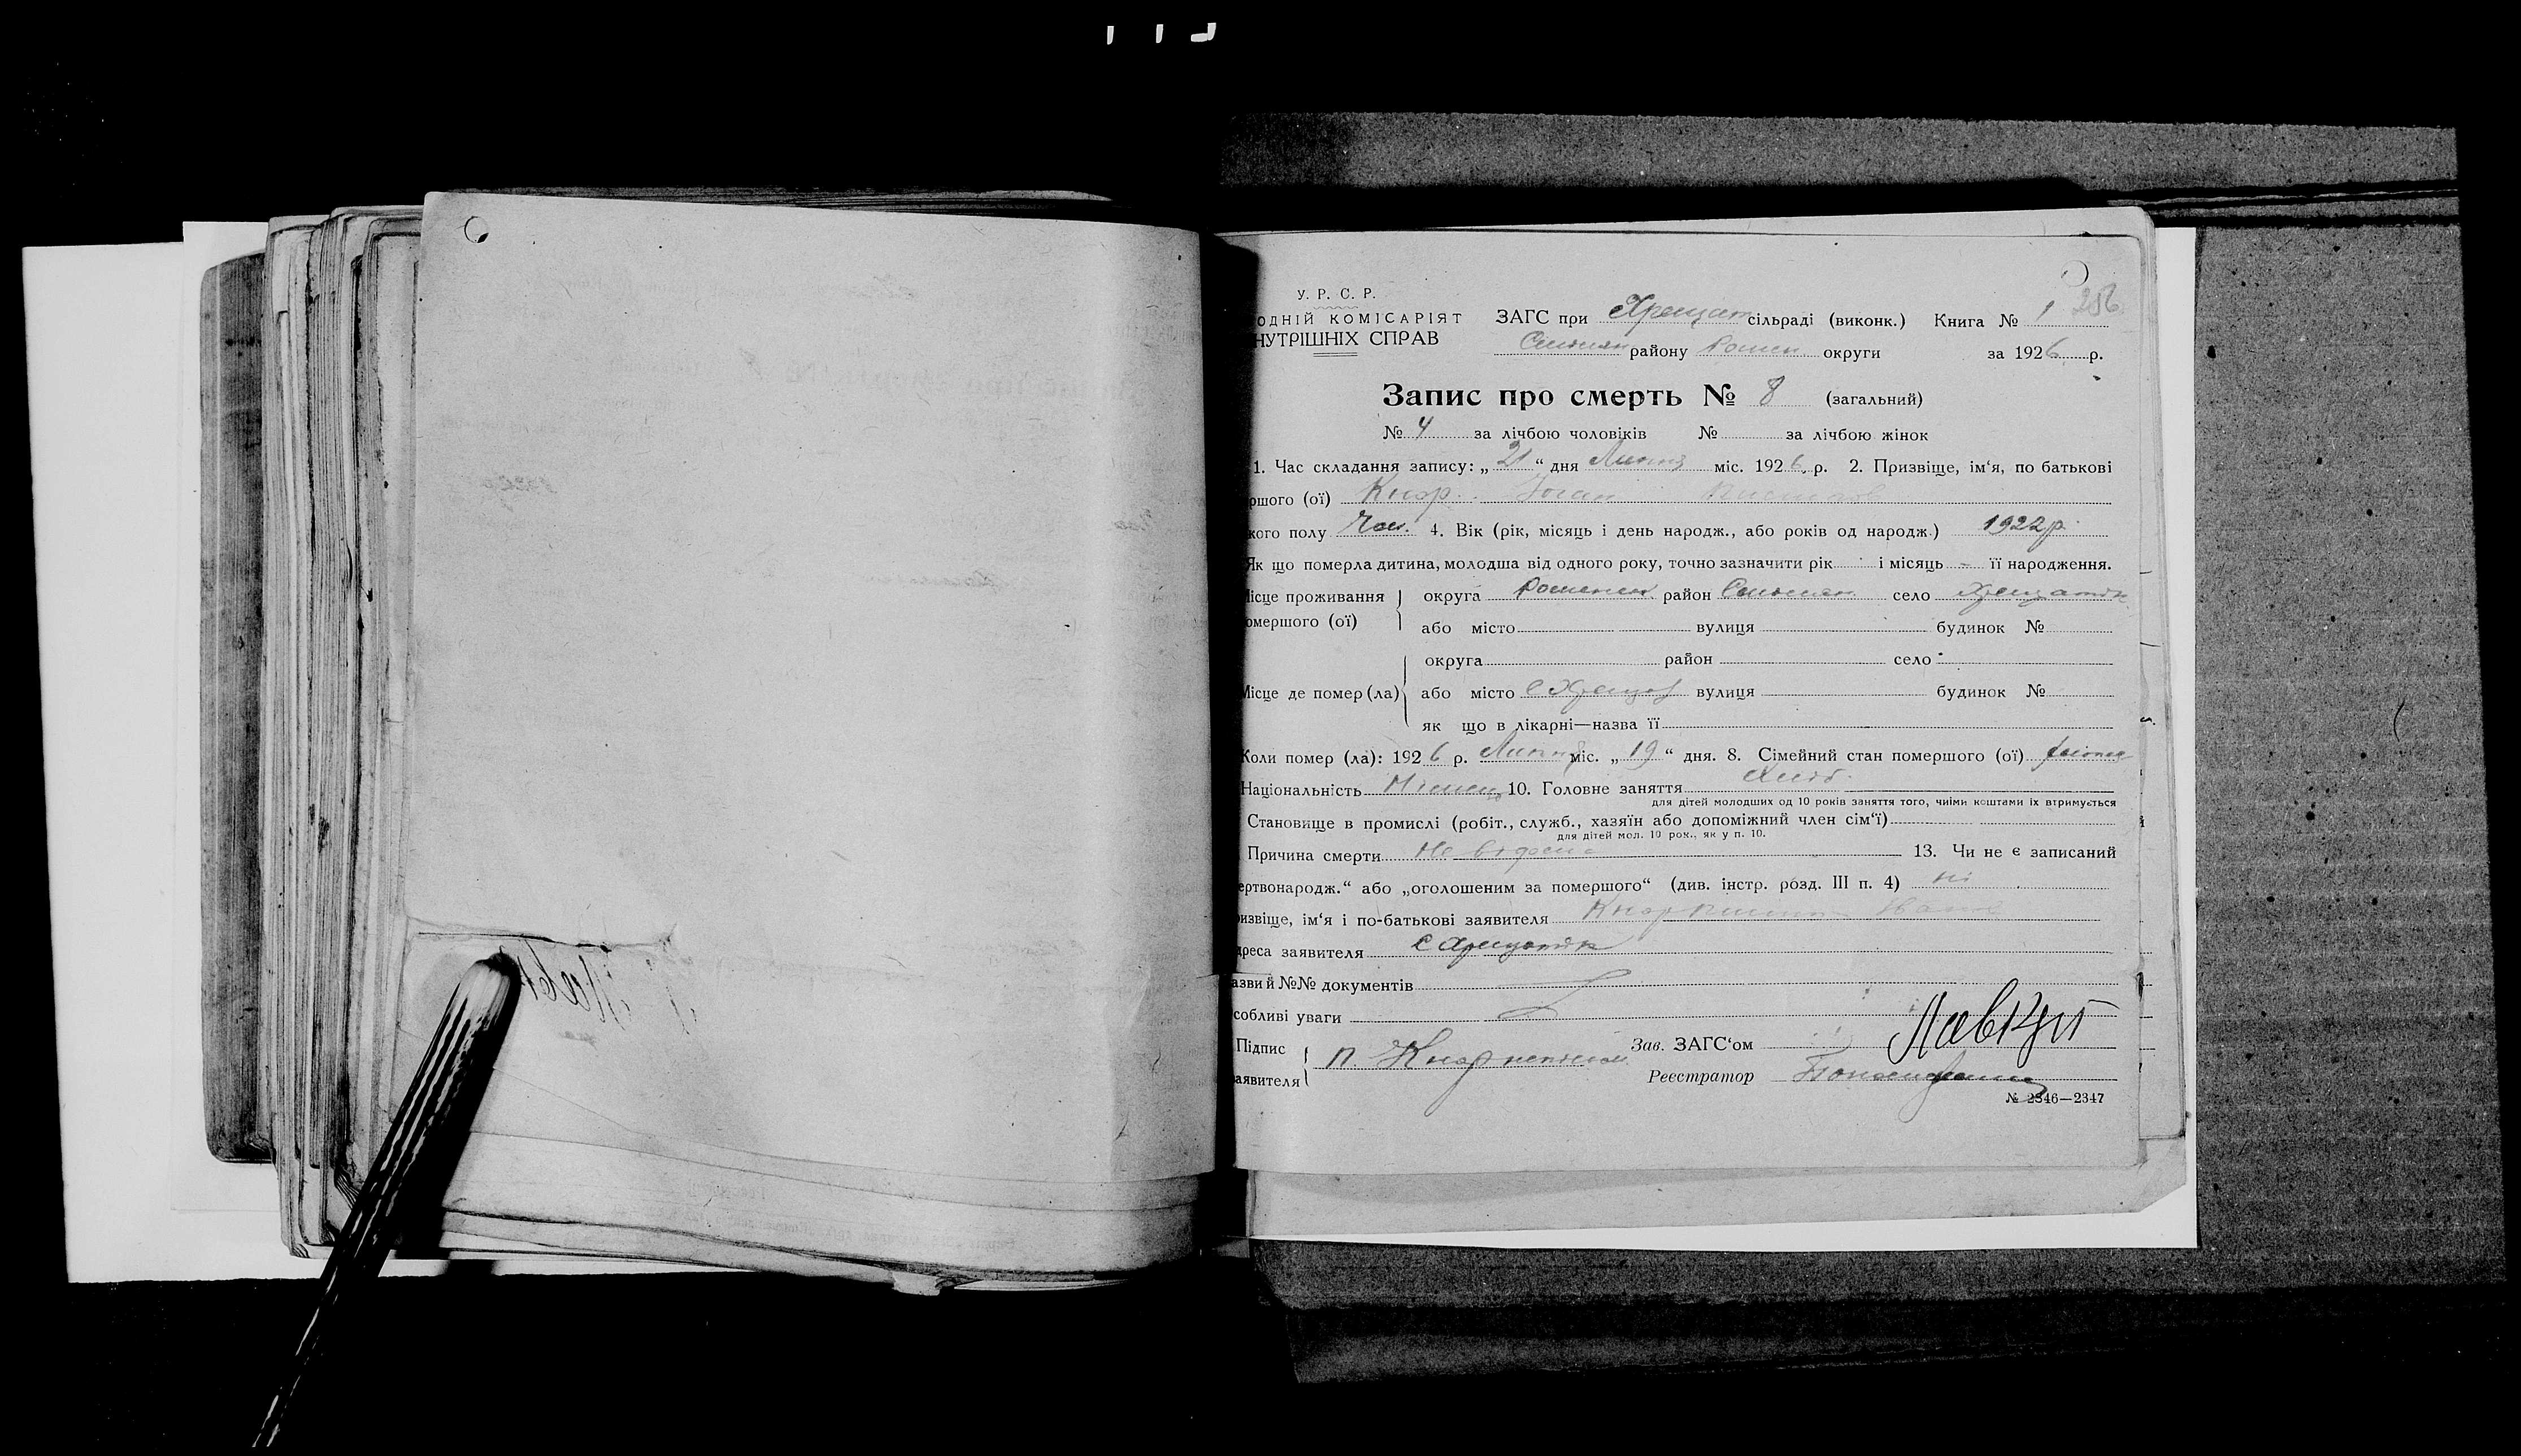 256
У. Р. С. Р.
ОДНІЙ КОМІСАРІЯТ ЗАГС при Хрещат сільраді (виконк.) Книга № 1
НУТРІШНІХ СПРАВ району Ромен округи за 1926 р.
Запис про смерть № 8 (загальний)
№ 4 за лічбою чоловіків № за лічбою жінок
1. Час складання запису: „21“ дня міс. 1926 р. 2. Призвіще, ім'я, по батькові
ршого (ої) Кнор Йоган
кого полу Чол. 4. Вік (рік, місяць і день народж., або років од народж.) 1922 р.
Як що померла дитина, молодша від одного року, точно зазначити рік і місяць – її народження.
ісце проживання округа Роменськ район село Хрещатик
омершого (ої) або місто вулиця будинок №
округа район село
Місце де помер (ла) або місто с Хрещат вулиця будинок №
як що в лікарні—назва її
Коли помер (ла): 1926 р. міс. „19“ дня. 8. Сімейний стан помершого (ої)
Національність 10. Головне заняття
для дітей молодших од 10 років заняття того, чиїми коштами їх втримується
Становище в промислі (робіт., служб., хазяїн або допоміжний член сім'ї)
для дітей мол. 10 рок., як у п. 10.
Причина смерти Не відома 13. Чи не є записаний
ертвонародж.“ або „оголошеним за помершого“ (див. інстр. розд. III п. 4) ні
ризвіще, ім'я і по-батькові заявителя Кнор
дреса заявителя с Хрещатик
азви й №№ документів
собливі уваги
Підпис заявителя п. Кнор Зав. ЗАГС'ом
Реєстратор
№ 2346—2347